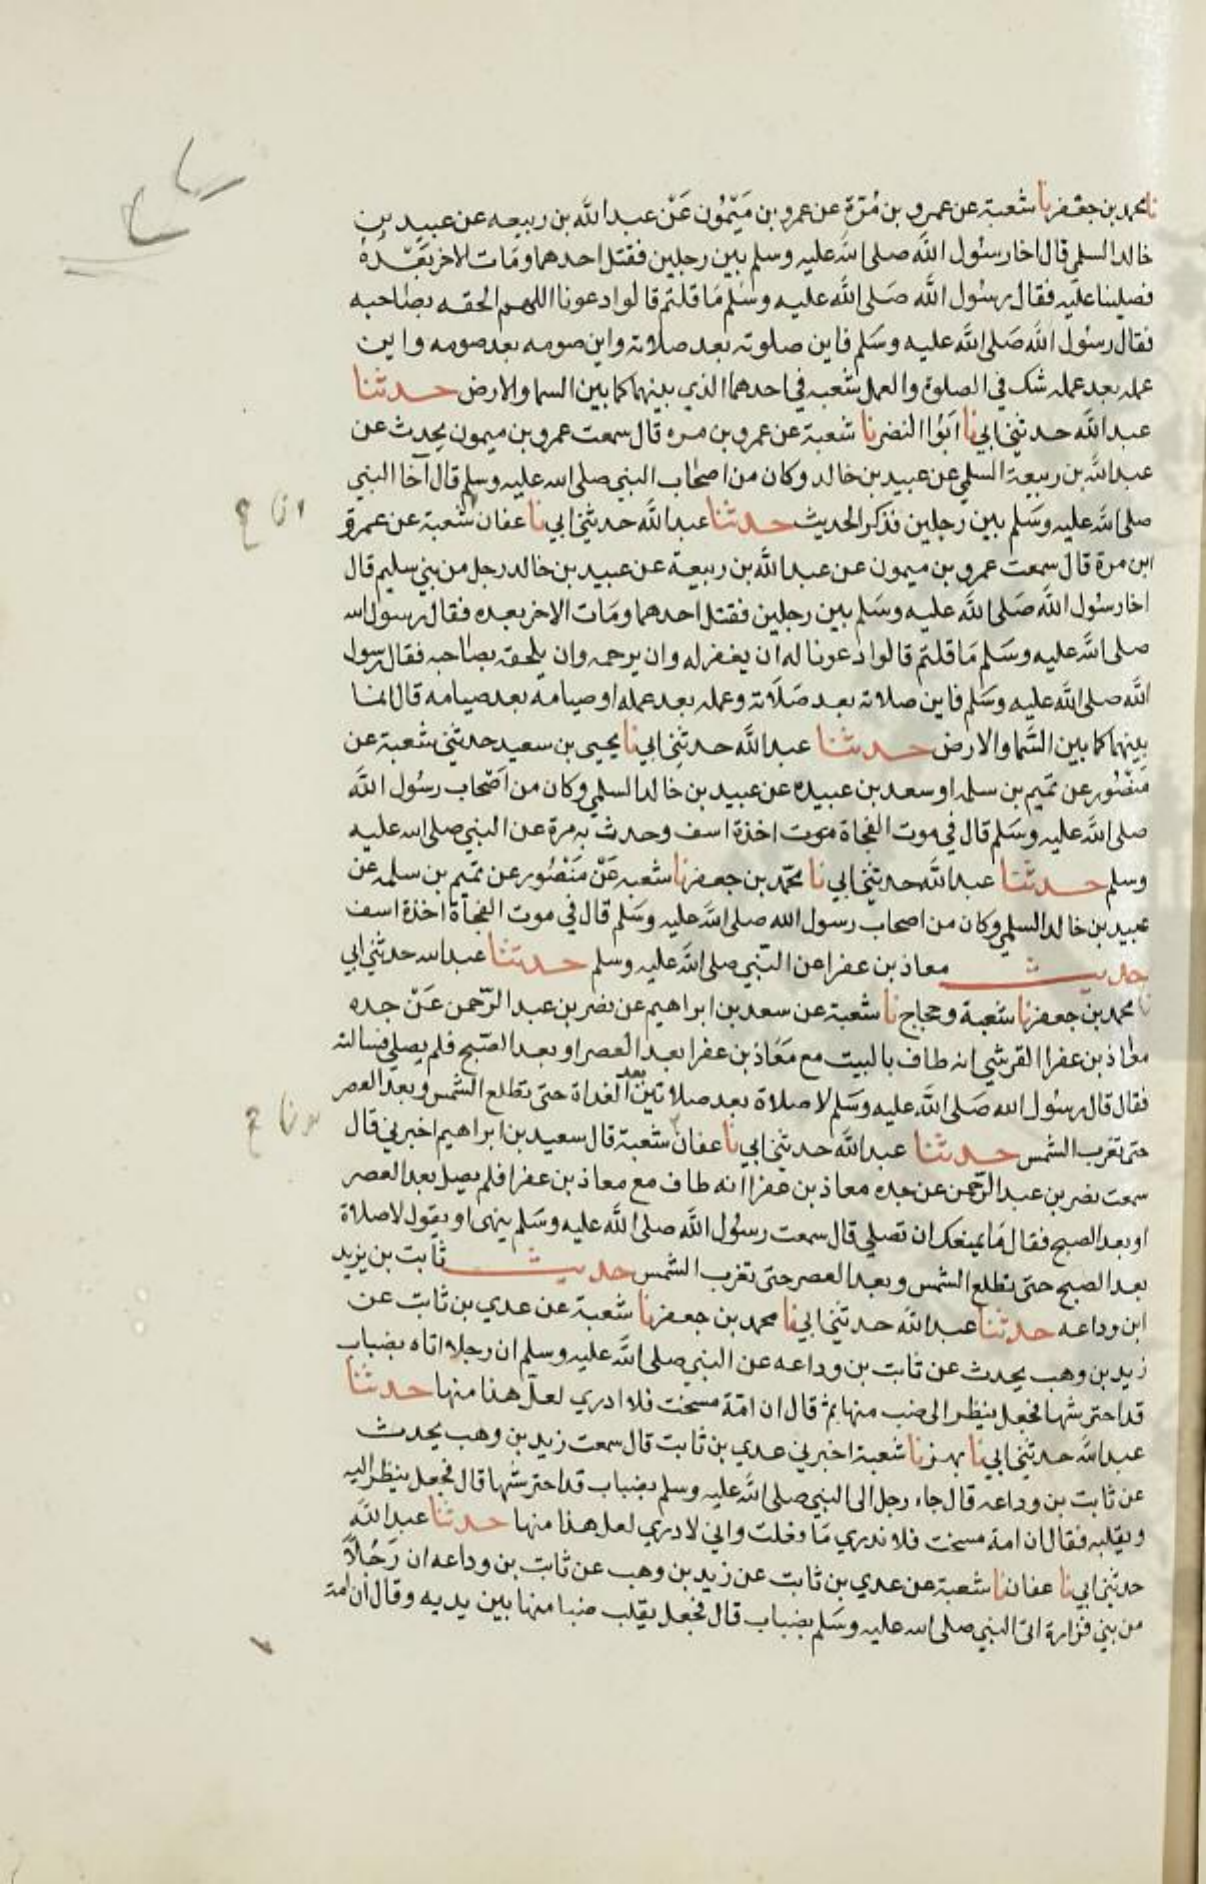 نا محمد بن جعفر نا شعبة عن عمرو بن مُرّة عن عمرو بن مَيْمُون عَنْ عبد الله بن ربيعه عن عبيد بن
خالد السلمي قال اخا رسُول الله صلى الله عليه وسلم بين رجلين فقتل احدهما ومَات الاخر بَعْدهُ
فصلينا عليه فقال رسُول الله صَلى الله عليه وسَلم مَا قلتم قالوا دعونا اللهم الحقه بصَاحبه
فقال رسُول الله صَلى الله عليه وسَلم فاين صلوته بعد صلاته واين صومه بعد صومه واين
عمله بعد عمله شك في الصلوة والعمل شعبه في احدهما الذي بينهما كما بين السما والارض حدثنا
عبد الله حدثني ابي نا ابَوُا النضر نا شعبة عن عمرو بن مره قال سمعت عمرو بن ميمون يحدث عن
عبد الله بن ربيعة السلمي عن عبيد بن خالد وكان من اصحَاب النبي صلى الله عليه وسلم قال آخا النبي
صلى الله عليه وسَلم بين رجلين فذكر الحديث حدثنا عبد الله حدثني ابي نا عفان شعبة عن عمرو
ابن مرة قال سمعت عمرو بن ميمون عن عبد الله بن ربيعة عن عبيد بن خالد رجل من بني سليم قال
اخا رسُول الله صَلى الله عليه وسَلم بين رجلين فقتل احدهما ومَات الاخر بعده فقال رسول الله
صلى الله عليه وسَلم مَا قلتم قالوا دعونا له ان يغفر له وان يرحمه وان يلحقه بصَاحبه فقال رسول
الله صلى الله عليه وسَلم فاين صلاته بعد صَلَاته وعمله بعد عمله او صيامه بعد صيامه قال لما
بينهما كما بين السَّما والارض حدثنا عبد الله حدثني ابي نا يحيى بن سعيد حدثني شعبة عن
مَنْصُور عن تميم بن سلمه او سعد بن عبيده عن عبيد بن خالد السلمي وكان من اصْحَاب رسُول الله
صلى الله عليه وسَلم قال في موت الفجاة موت اخذة اسف وحدث به مرة عن النبي صلى الله عليه
وسلم حدثنا عبد الله حدثني ابي نا محمّد بن جعفر نا شعبه عَنْ مَنْصُور عن تميم بن سلمه عن
عبيد بن خالد السلمي وكان من اصحاب رسول الله صلى الله عليه وسَلم قال في موت الفجأة اخذة اسف
حديث معاذ بن عفرا عن النّبي صلى الله عليه وسلم حدثنا عبد الله حدثني ابي
نا محمد بن جعفر نا شعبة وحجاج نا شعبة عن سعد بن ابراهيم عن نصر بن عبد الرّحمن عَنْ جده
معَاذ بن عفرا القرشي انه طاف بالبيت مع مَعَاذ بن عفرا بعد العصر او بعد الصّبح فلم يصلي فسالته
فقال قال رسُول الله صَلى الله عليه وسَلم لا صلاة بعد صلاتين بعد الغداة حتى تطلع الشمس وبعد العصر
حتى تغرب الشمس حدثنا عبد الله حدثني ابي نا عفان شعبة قال سعيد بن ابراهيم اخبرني قال
سمعت نصر بن عبد الرّحمن عن جده معاذ بن عفرا انه طاف مع معاذ بن عفرا فلم يصل بعد العصر
او بعد الصبح فقال مَا يمنعك ان تصلي قال سمعت رسُول الله صلى الله عليه وسَلم ينهى او يقول لا صلاة
بعد الصبح حتى تطلع الشمس وبعد العصر حتى تغرب الشمس حديث ثابت بن يزيد
ابن وداعه حدثنا عبد الله حدثني ابي نا محمد بن جعفر نا شعبة عن عدي بن ثابت عن
زيد بن وهب يحدث عن ثابت بن وداعه عن النبي صلى الله عليه وسلم ان رجلا اتاه بضباب
قد احترشها فجعل ينظر الى ضب منها ثم قال ان امّة مسخت فلا ادري لعلّ هذا منها حدثنا
عبد الله حدثني ابي نا بهز نا شعبة اخبرني عدي بن ثابت قال سمعت زيد بن وهب يحدث
عن ثابت بن وداعه قال جاء رجل الى النبي صلى الله عليه وسلم بضباب قد احترشها قال فجعل ينظر اليه
ويقلبه فقال ان امة مسخت فلا ندري مَا فعلت واني لا دري لعل هذا منها حدثنا عبد الله
حدثني ابي نا عفان نا شعبة عن عدي بن ثابت عن زيد بن وهب عن ثابت بن وداعه ان رَجُلاً
من بني فزارة اتى النبي صلى الله عليه وسَلم بضباب قال فجعل يقلب ضبا منها بين يديه وقال ان امة